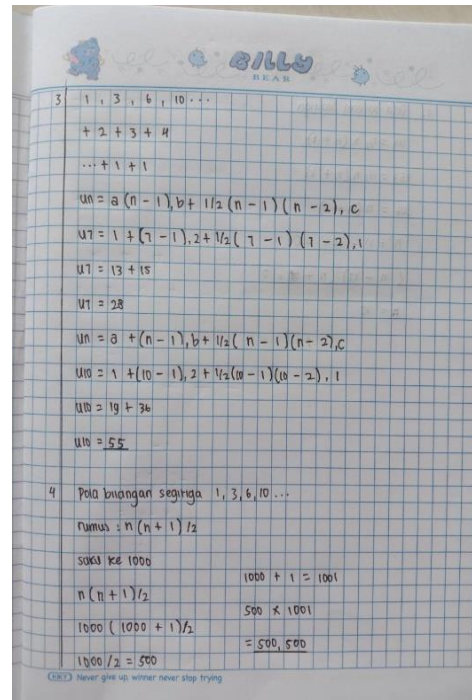 BILLY
BEAR
3 1, 3, 6, 10...
+ 2 + 3 + 4
...+ 1 + 1
un = a (n - 1), b + 1/2 (n - 1) (n - 2), c
u7 = 1 + (7 - 1), 2 + 1/2 (7 - 1) (7 - 2), 1
u7 = 13 + 15
u7 = 28
un = a + (n - 1), b + 1/2 ( n - 1) (n - 2), c
u10 = 1 + (10 - 1), 2 + 1/2 (10 - 1) (10 - 2), 1
u10 = 19 + 36
u10 = 55
4 Pola bilangan segitiga 1, 3, 6, 10 ...
rumus : n (n + 1) /2
suku ke 1000
n (n + 1) /2
1000 ( 1000 + 1)/2
1000 /2 = 500
1000 + 1 = 1001
500 x 1001
= 500,500
Never give up, winner never stop trying